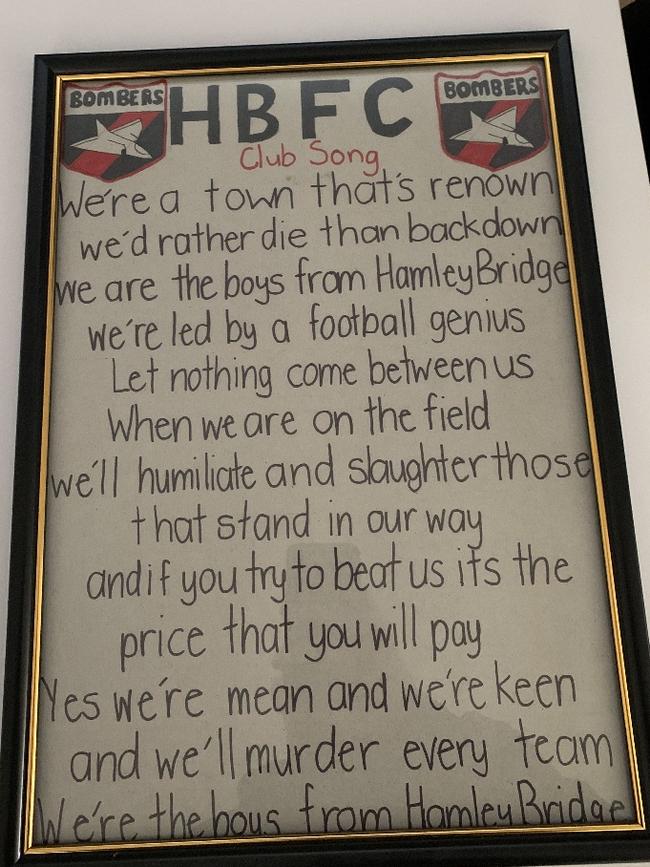 BOMBERS HBFC BOMBERS
Club Song
We're a town that's renown
we'd rather die than back down
we are the boys from Hamley Bridge
we're led by a football genius
Let nothing come between us
When we are on the field
we'll humiliate and slaughter those
that stand in our way
and if you try to beat us its the
price that you will pay
Yes we're mean and we're keen
and we'll murder every team
We're the boys from Hamley Bridge